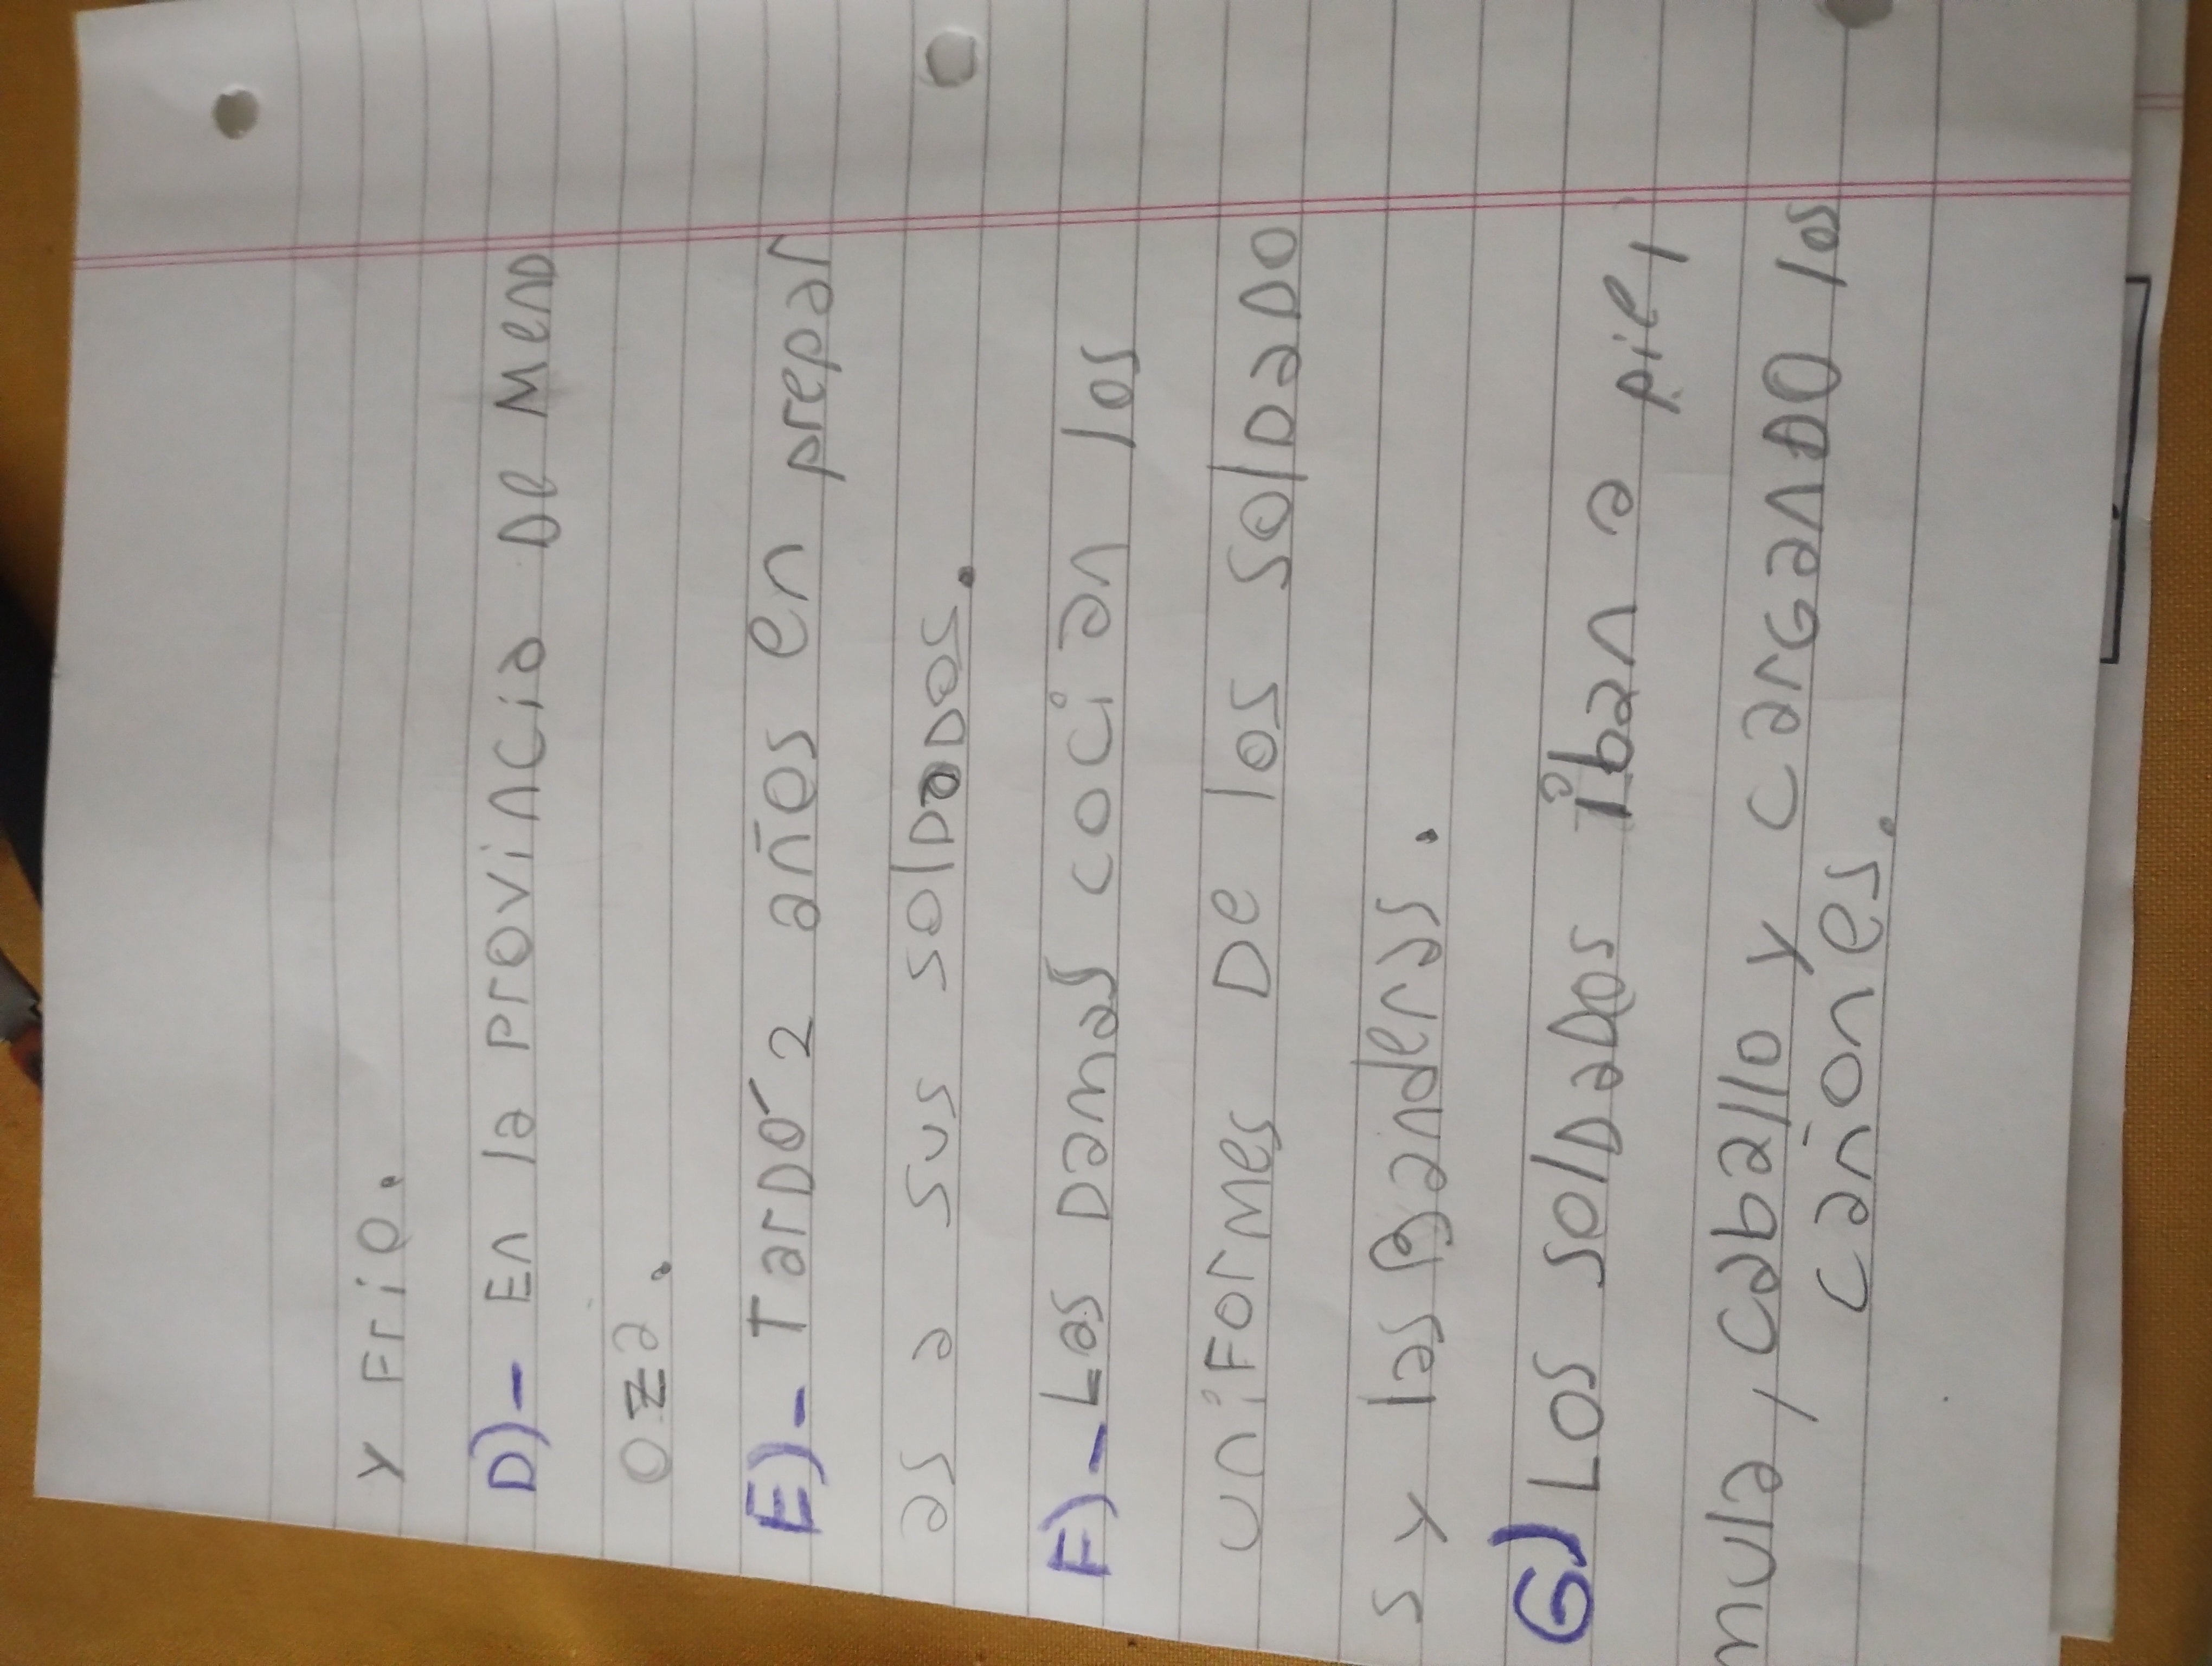 y Frío.
D)- En la provincia De Mend
oza.
E)- Tardó 2 años en prepar
as a sus soldados.
F)- Las Damas cocían los
uniformes De los soldado
s y las Banderas.
G) Los soldados iban a pie,
mula, caballo y cargando los
cañones.